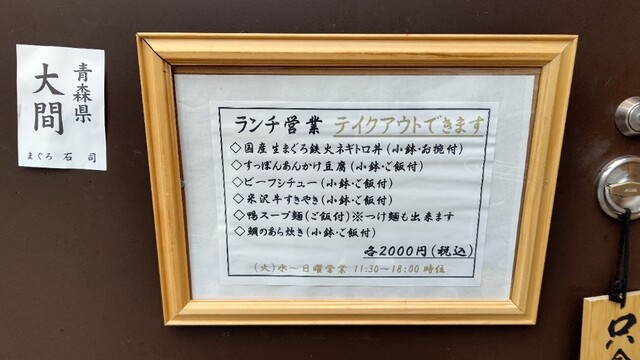 青森県
大間
まぐろ 石司
ランチ営業 テイクアウトできます
◇国産生まぐろ鉄火ネギトロ丼(小鉢・お椀付)
◇すっぽんあんかけ豆腐(小鉢・ご飯付)
◇ビーフシチュー(小鉢・ご飯付)
◇米沢牛すきやき(小鉢・ご飯付)
◇鴨スープ麺(ご飯付)※つけ麺も出来ます
◇鯛のあら炊き(小鉢・ご飯付)
各2000円(税込)
(火)水〜日曜営業 11:30〜18:00 時位